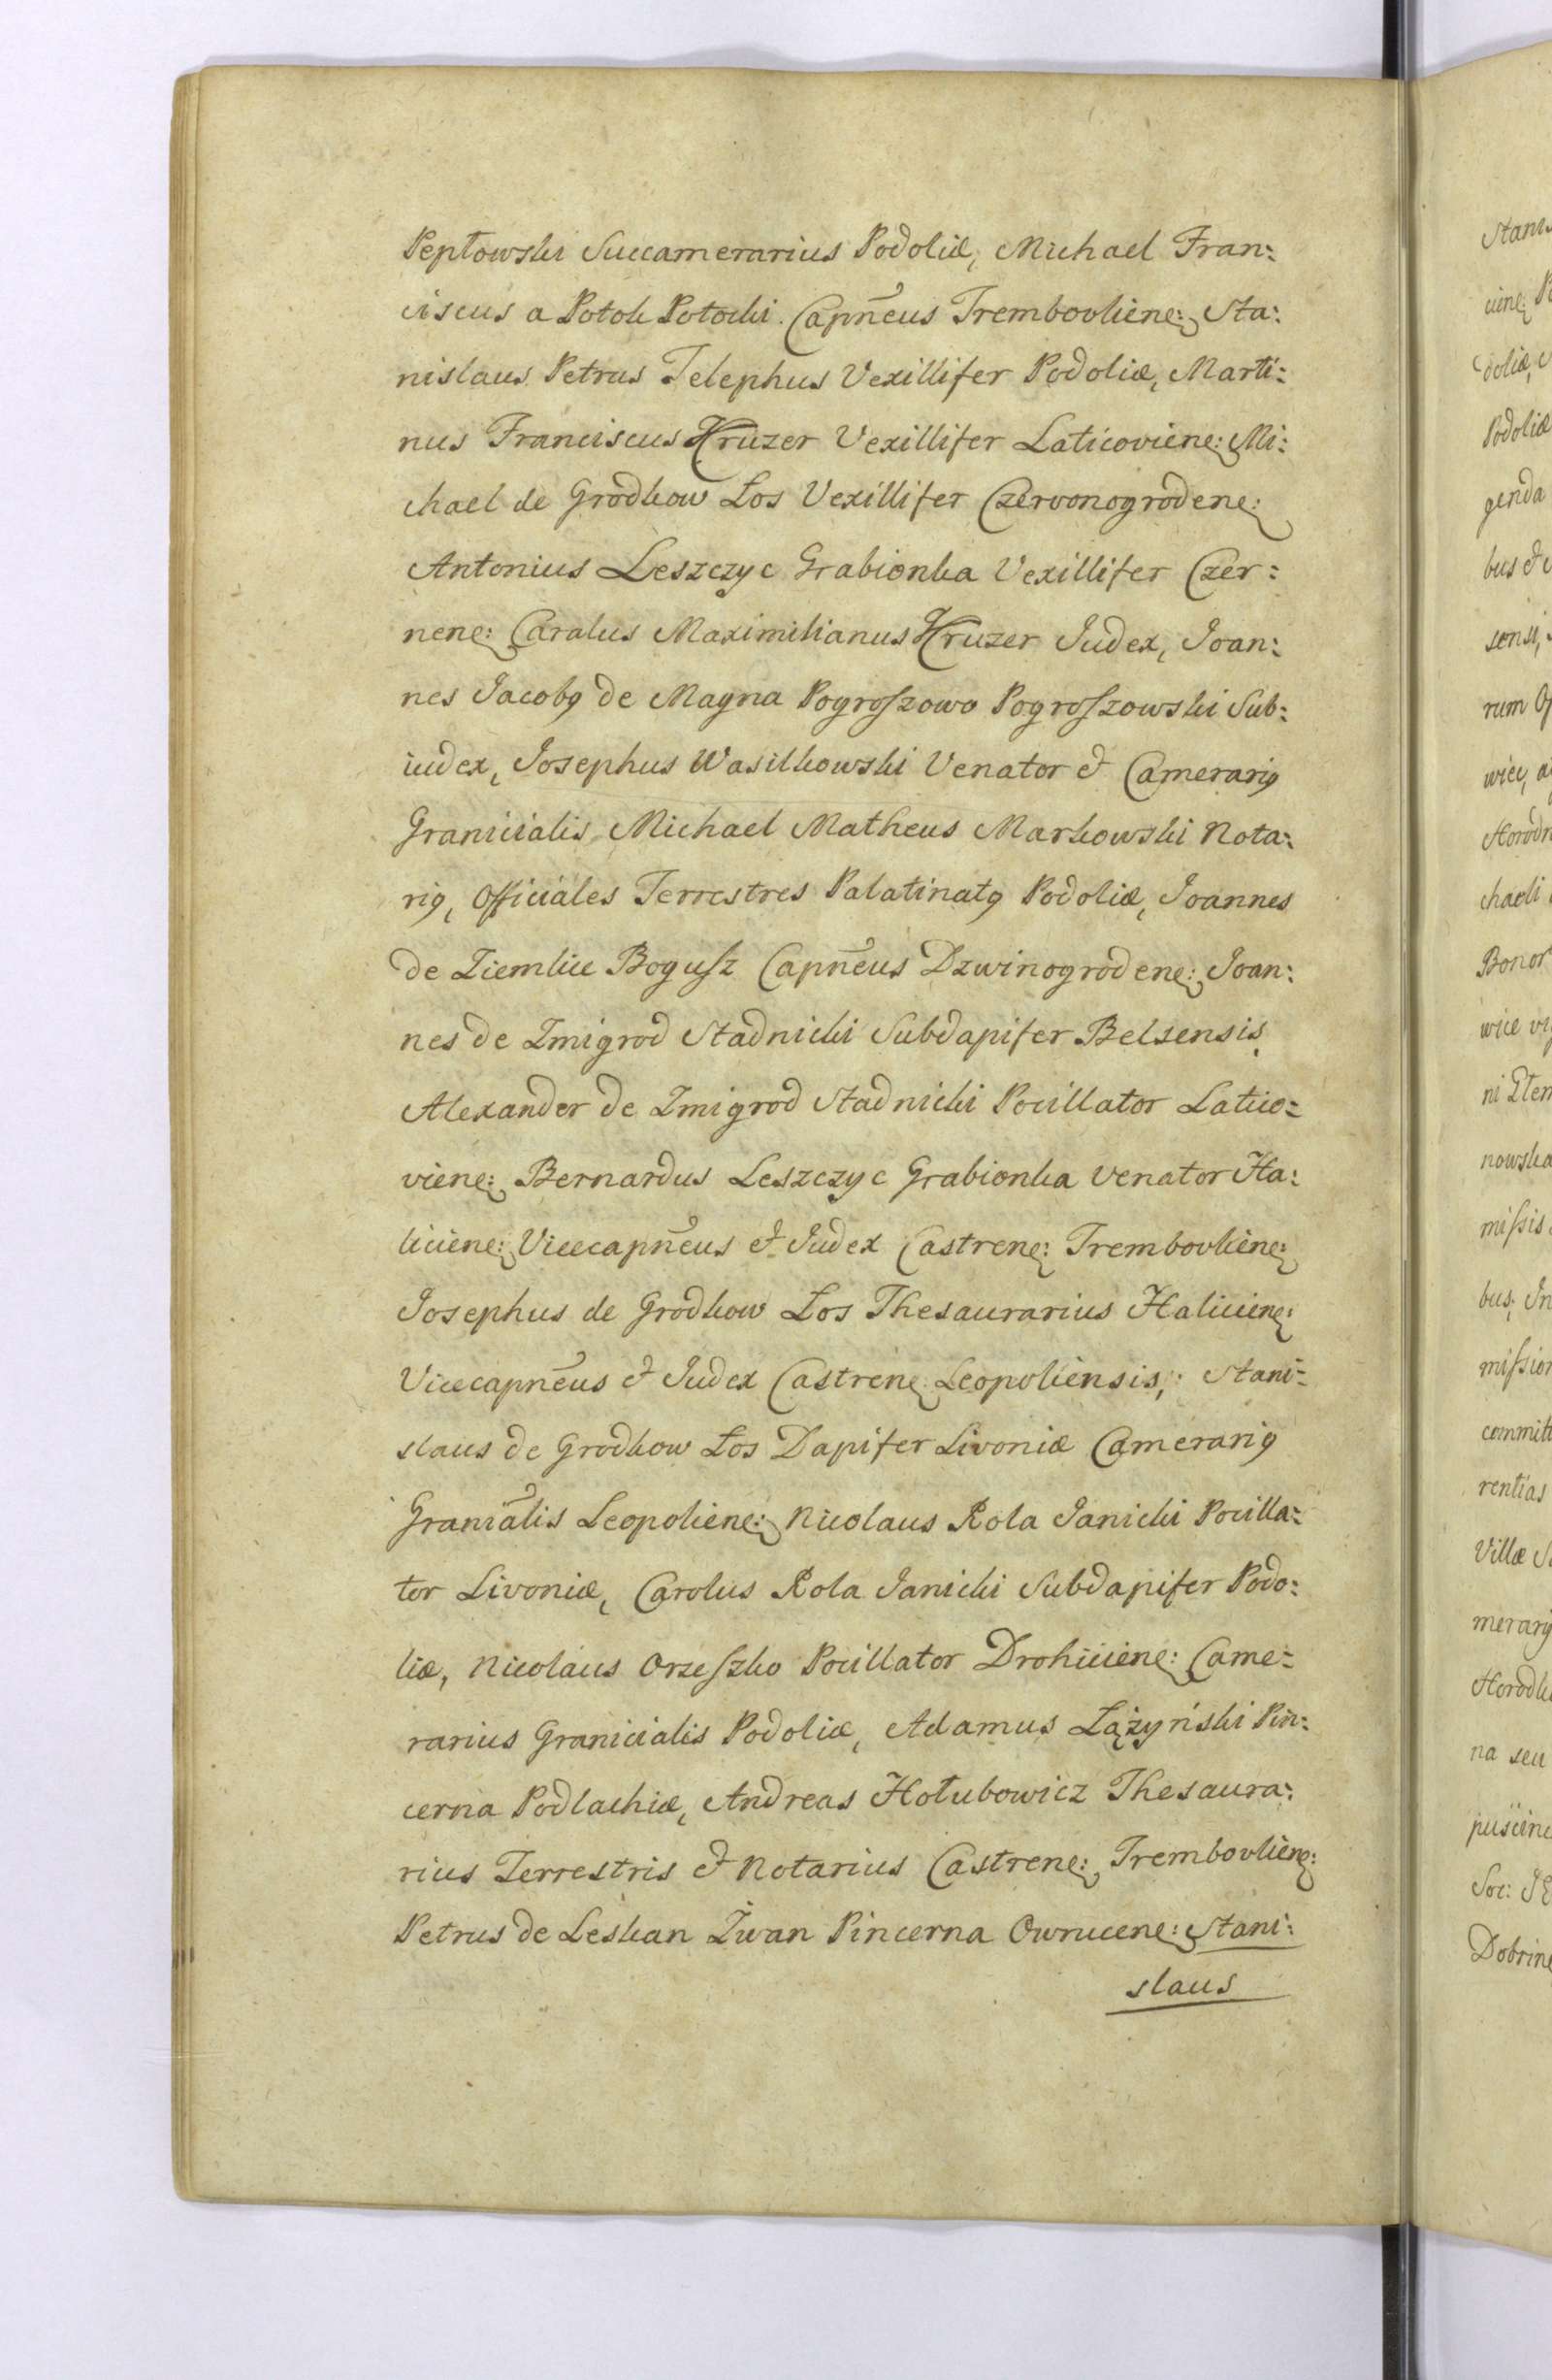 Pepłowski Succamerarius Podoliæ, Michael Fran:
ciscus a Potok Potocki. Capñeus Trembovliene: Sta:
nislaus Petrus Telephus Vexillifer Podoliæ, Marti:
nus Franciscus Kruzer Vexillifer Laticoviene: Mi:
chael de Grodkow Łos Vexillifer Czervonogrodene:
Antonius Leszczyc Grabionka Vexillifer Czer:
nene: Caralus Maximilianus Kruzer Judex, Joan:
nes Jacobꝯ de Magna Pogroſzowo Pogroſzowski Sub:
iudex, Josephus Wasilkowski Venator & Camerariꝯ
Granicialis, Michael Matheus Markowski Nota:
riꝯ, Officiales Terrestres Palatinatꝯ Podoliæ, Joannes
de Ziemlice Boguſz Capñeus Dzwinogrodene: Joan:
nes de Zmigrod Stadnicki Subdapifer Belsensis,
Alexander de Zmigrod Stadnicki Pocillator Latico:
viene: Bernardus Leszczyc Grabionka Venator Ha:
liciene: Vicecapñeus & Judex Castrene: Trembovliene:
Josephus de Grodkow Łos Thesaurarius Haliciene:
Vicecapñeus & Judex Castrene Leopoliensis,: Stani:
slaus de Grodkow Łos Dapifer Livoniæ Camerariꝯ
Graniãlis Leopoliene: Nicolaus Rola Janicki Pocilla:
tor Livoniæ, Carolus Rola Janicki Subdapifer Podo:
liæ, Nicolaus Orzeſzko Pocillator Drohiciene: Came:
rarius Granicialis Podoliæ, Adamus Łążyński Pin:
cerna Podlachiæ, Andreas Hołubowicz Thesaura:
rius Terrestris & Notarius Castrene: Trembovliene:
Petrus de Leskan Żwan Pincerna Owrucene: Stani:
slaus